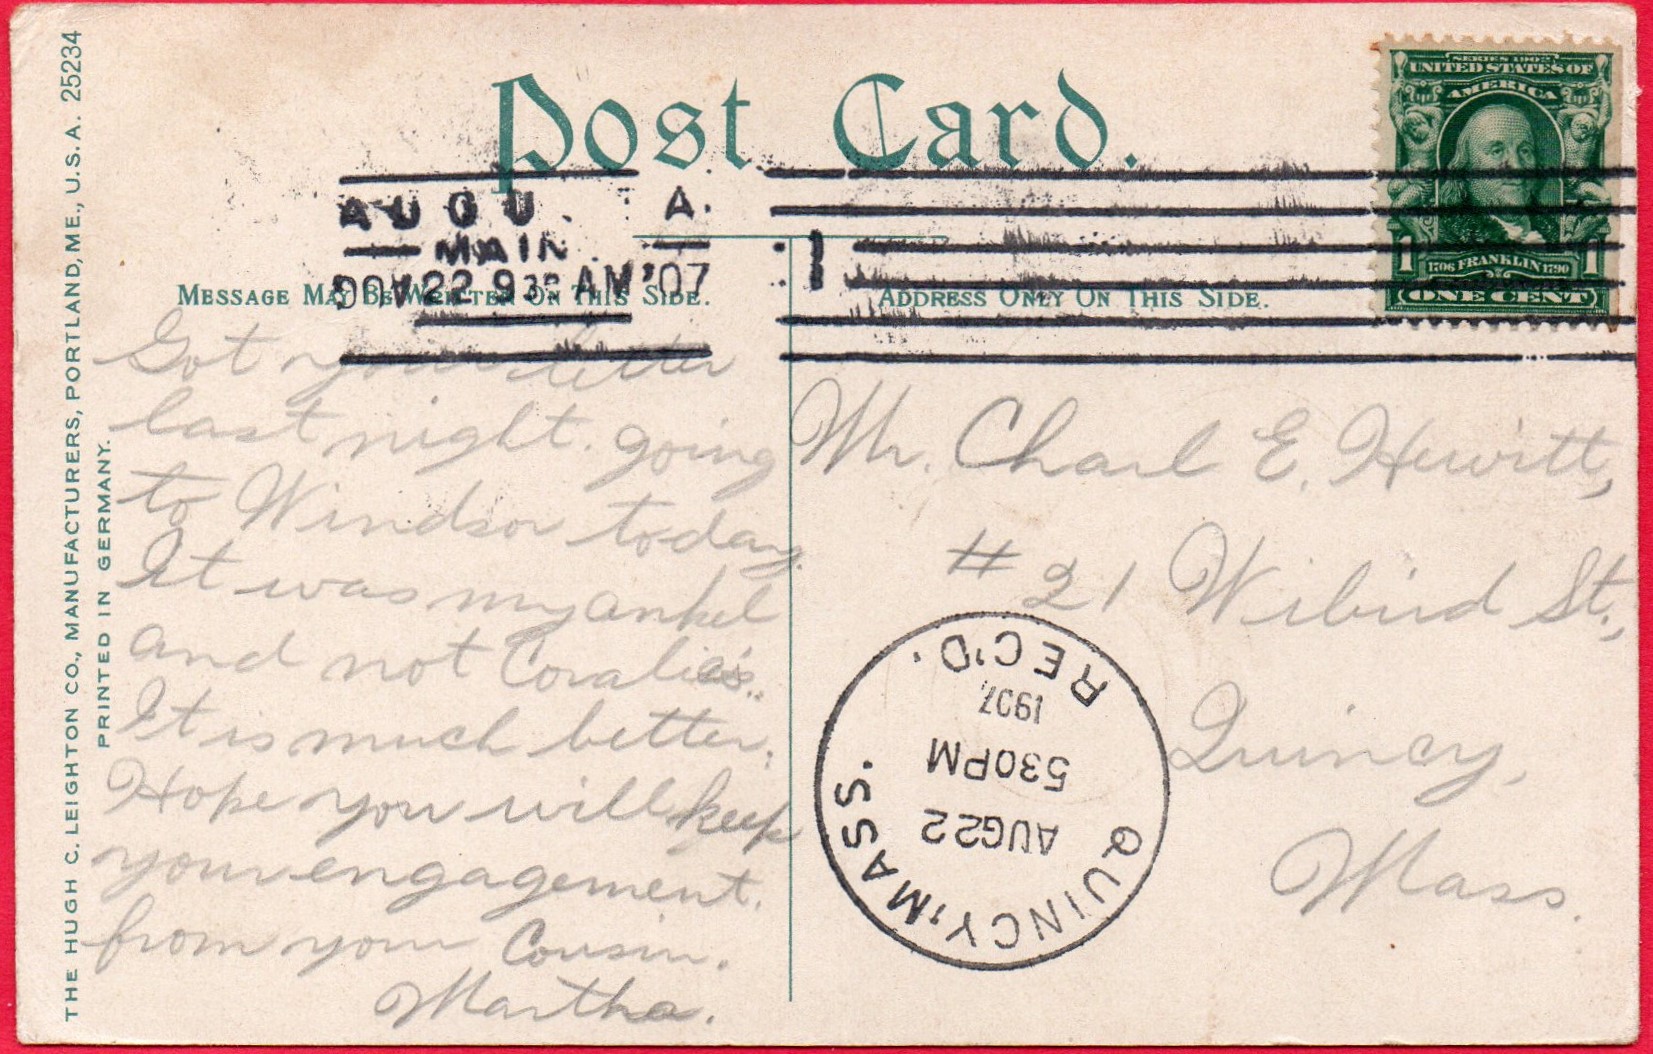 THE HUGH C. LEIGHTON CO., MANUFACTURERS, PORTLAND, ME., U.S.A. 25234
PRINTED IN GERMANY.
Post Card.
SERIES 1902
UNITED STATES OF
AMERICA
1 1
1706 FRANKLIN 1790
ONE CENT
AUGU A.
MAIN
22 930 AM '07
1
MESSAGE MAY BE WRITTEN ON THIS SIDE.
ADDRESS ONLY ON THIS SIDE.
Got your letter
last night. going
to Windsor today.
It was my ankel
and not Coralie's.
It is much better.
Hope you will keep
your engagement.
from your Cousin.
Martha.
Mr. Charl E. Hewitt,
# 21 Wibird St.,
Quincy,
Mass.
QUINCY, MASS.
AUG 22
530 PM
1907
REC'D.